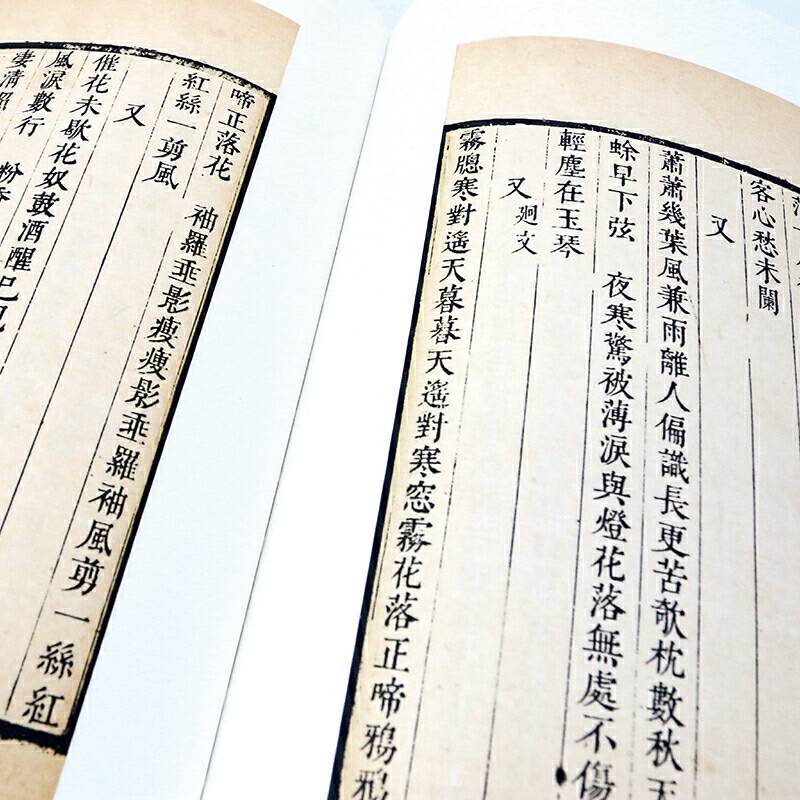 客心愁未闌
又
蕭蕭幾葉風兼雨離人偏識長更苦欹枕數秋天
蜍早下弦　夜寒驚被薄淚與燈花落無處不傷
輕塵在玉琴
又廻文
霧牎寒對遙天暮暮天遙對寒窓霧花落正啼鴉鴉
啼正落花　袖羅垂影瘦瘦影垂羅袖風剪一絲紅
紅絲一剪風
又
催花未歇花奴鼓酒醒已
風淚數行　粉香
淒清照